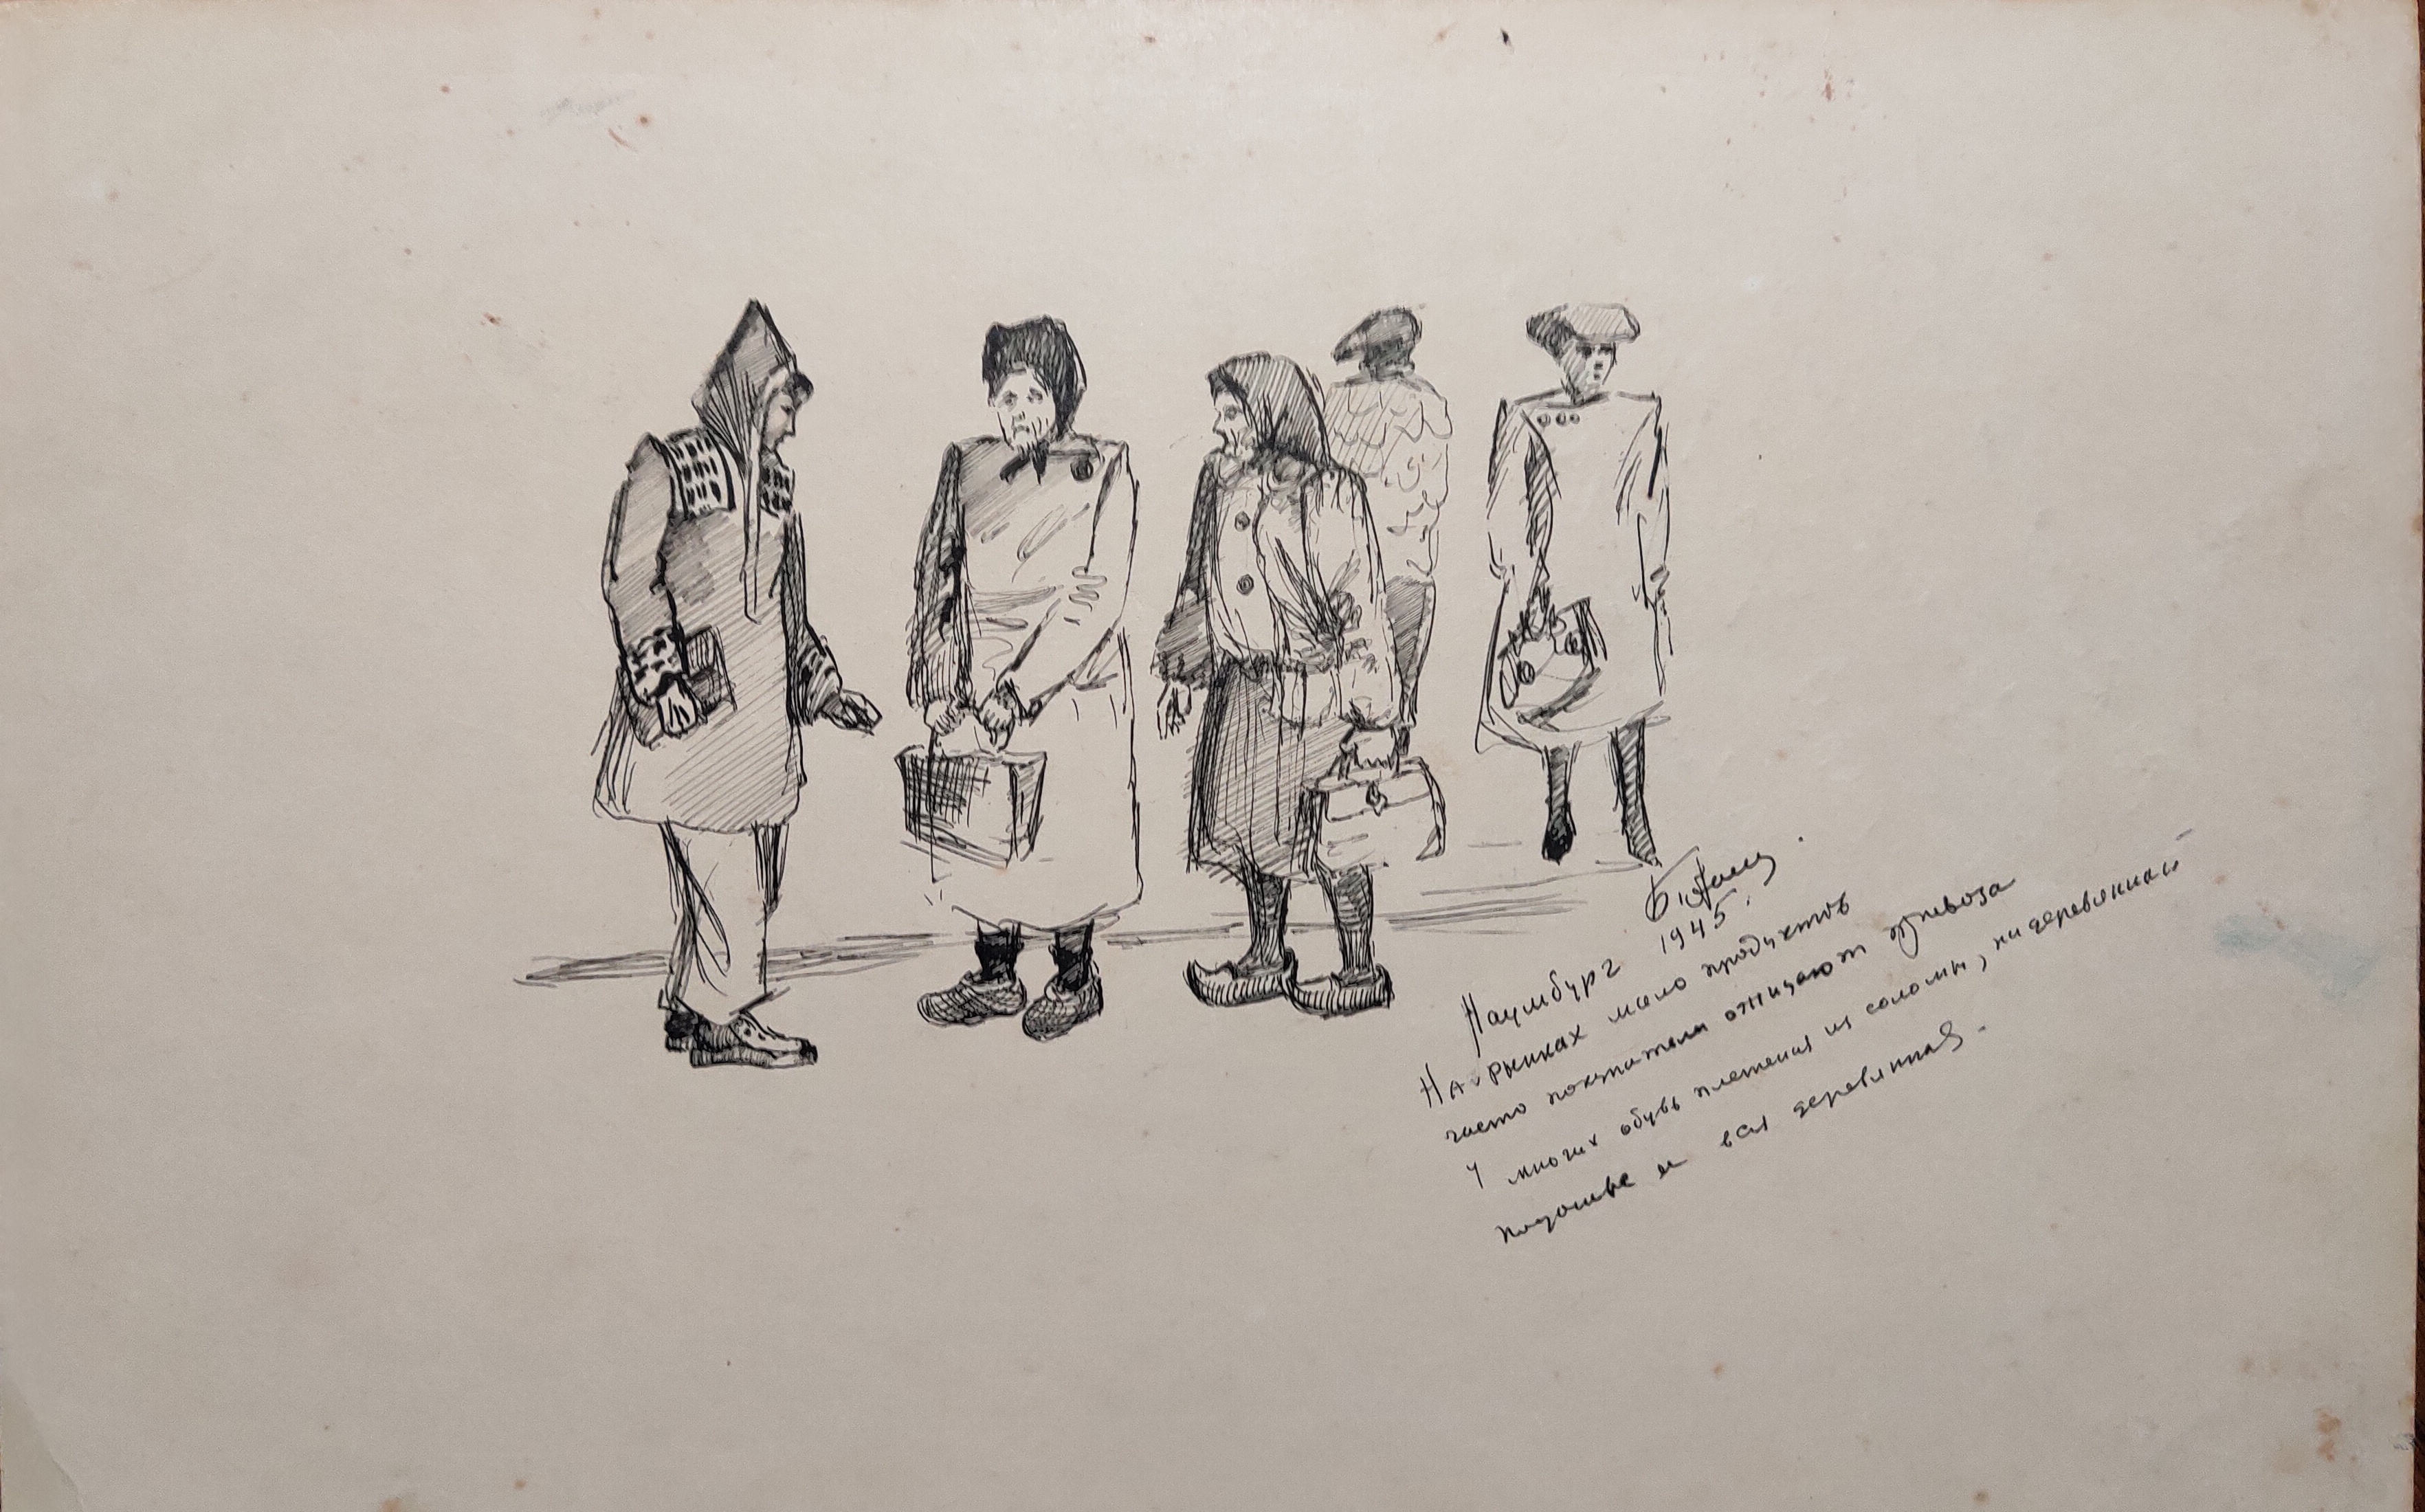 1945.
Наумбург
На рынках мало продуктов
часто покупатели ожидают привоза
У многих обувь плетеная из соломы, на деревянной
подошве и вся деревянная.